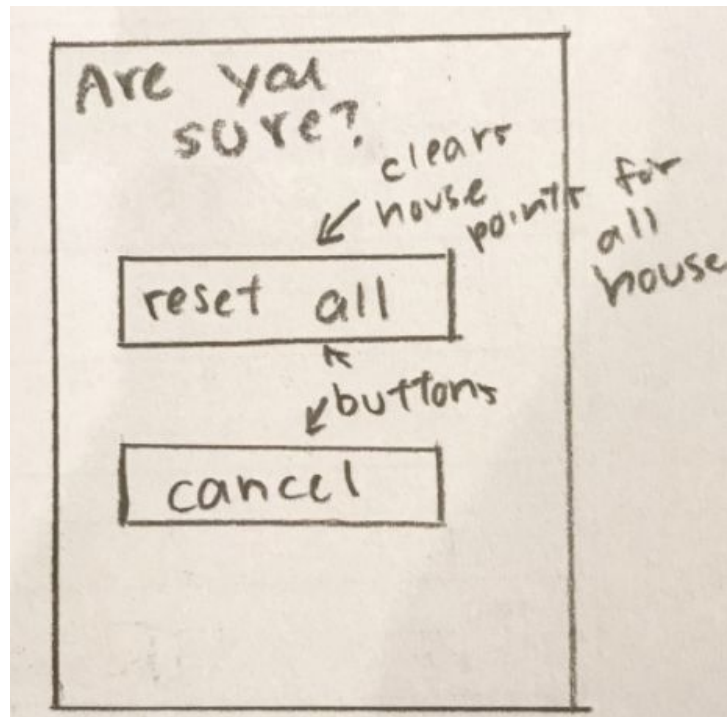 Are you
sure?
clears
house
points for
all
house
reset all
buttons
cancel